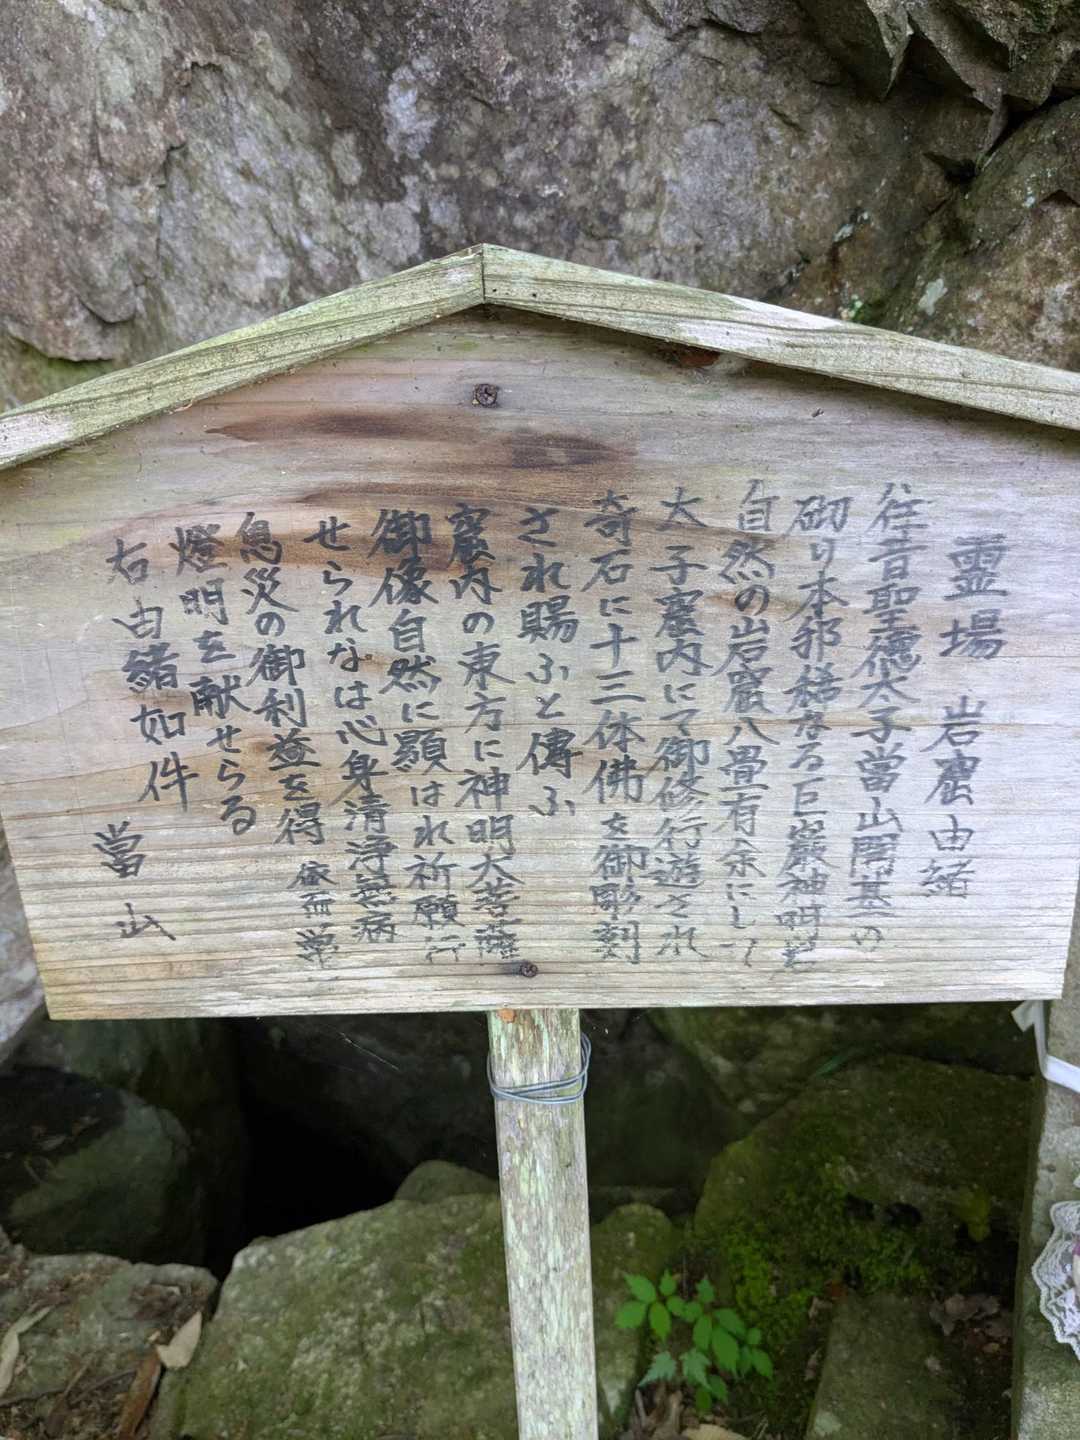 霊場 岩窟由緒
往昔聖徳太子當山開基の
砌り本邦稀なる巨巌神明岩
自然の岩窟八畳有余にして
太子窟内にて御修行遊され
奇石に十三体佛を御彫刻
され賜ふと傳ふ
窟内の東方に神明大菩薩
御像自然に顯はれ祈願行
せられなは心身清浄無病
息災の御利益を得 依而常
燈明を献せらる
右由緒如件
當山